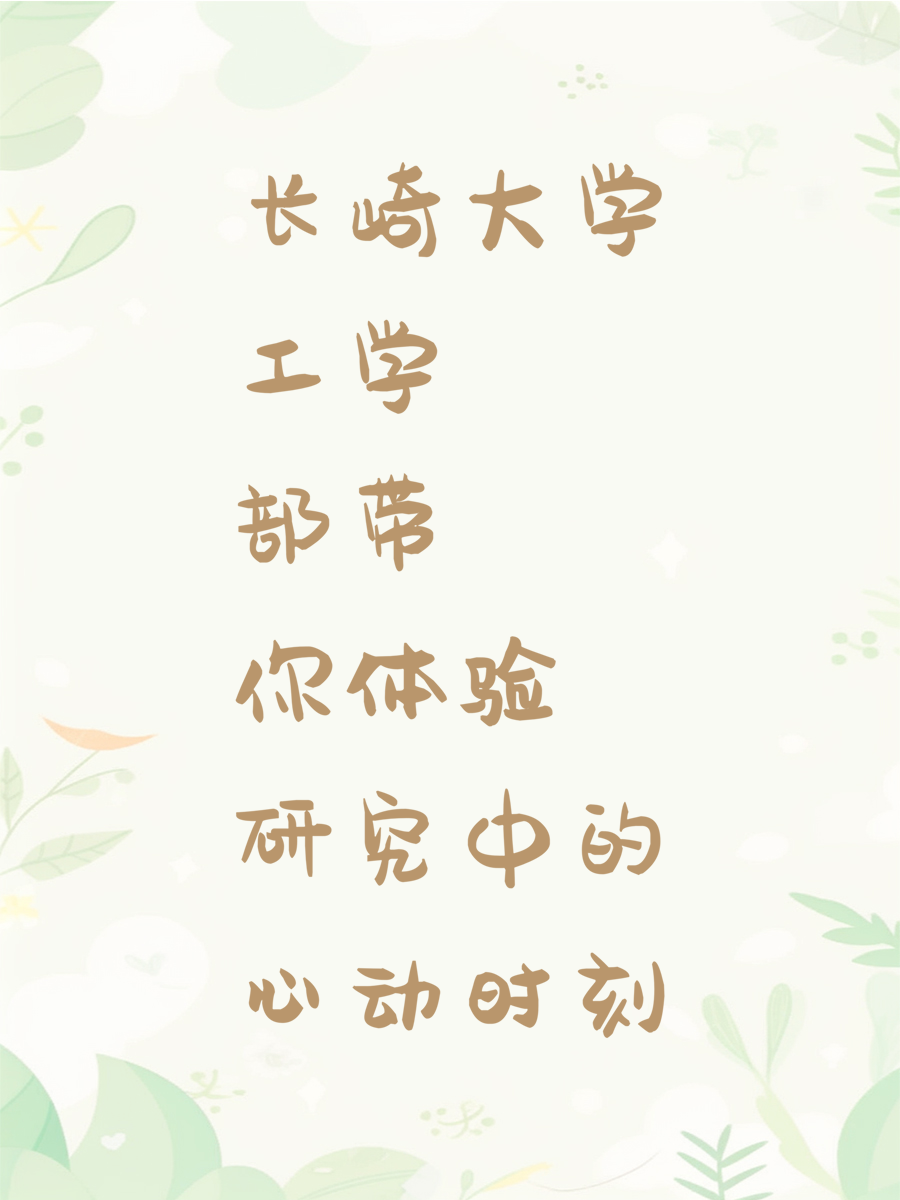 长崎大学
工学
部带
你体验
研究中的
心动时刻